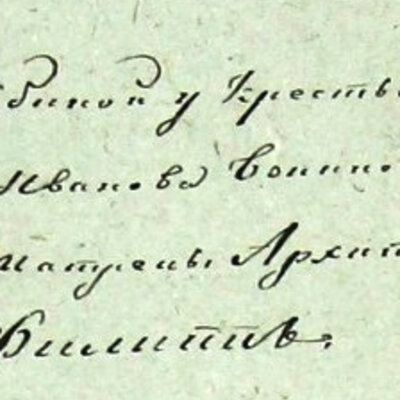 биной у Кресть
Иванова Воино
Матрены Архип
Филиппъ.